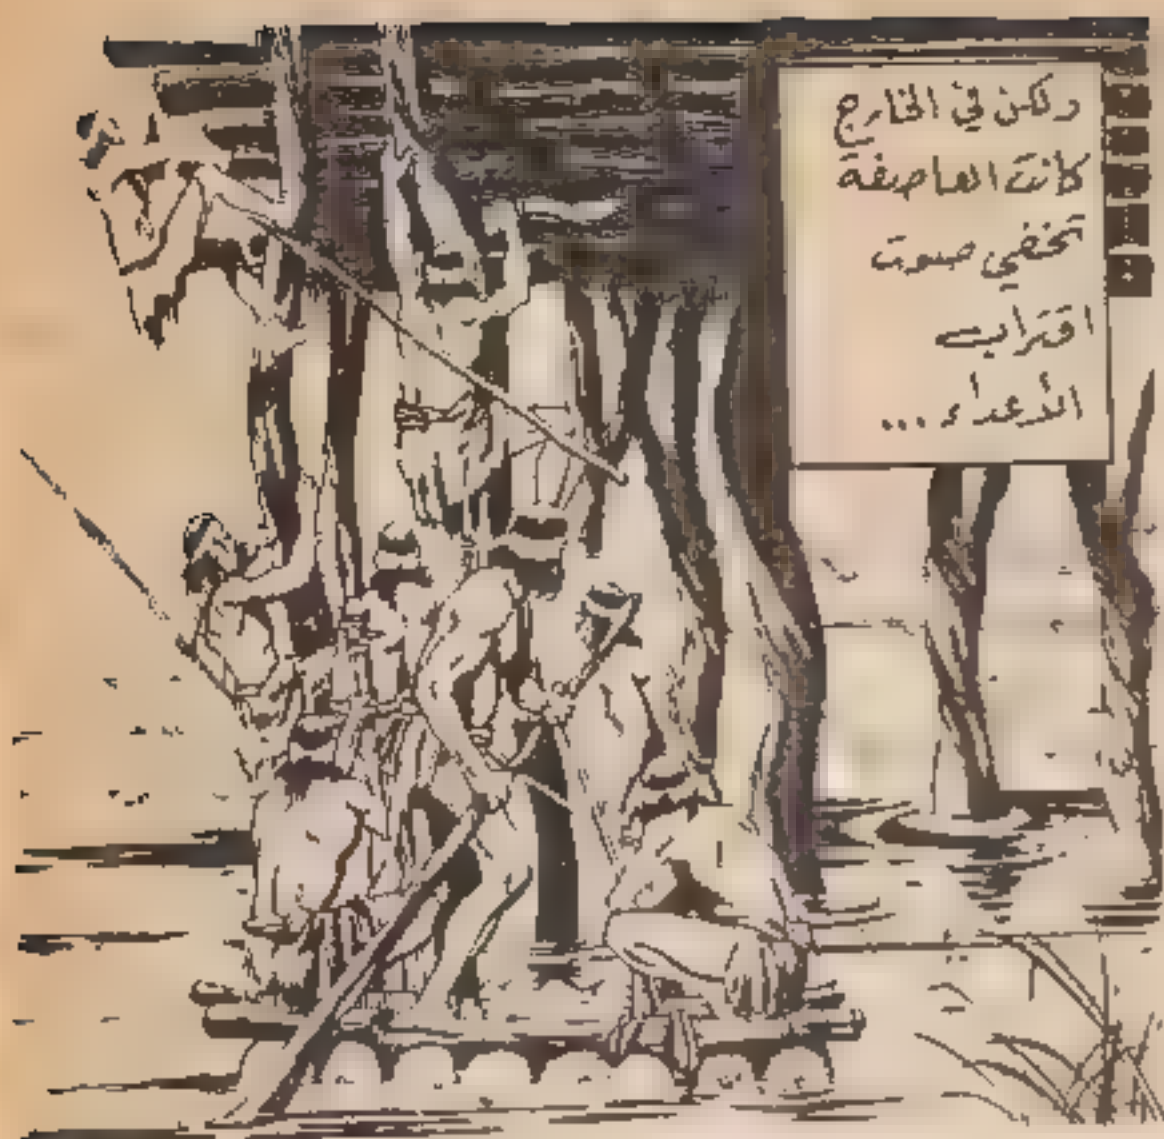 ولكن في الخارج
كانت العاصفة
تخفي صوت
اقتراب
الأعداء...